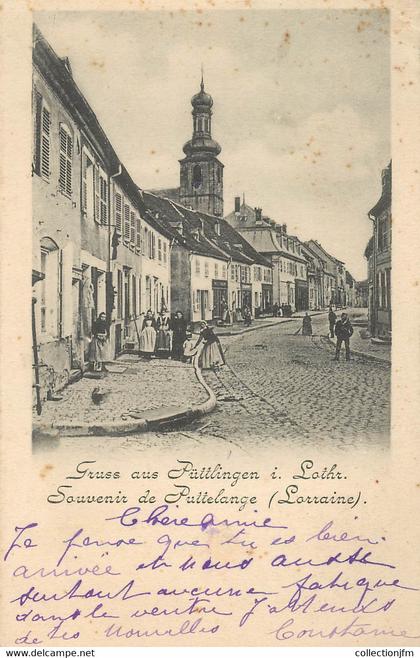 Gruss aus Püttlingen i. Lothr.
Souvenir de Puttelange (Lorraine).
Chère amie
Je pense que tu es bien
arrivée et nous aussi
surtout aucune fatigue
dans le ventre J'attends
de tes nouvelles Constance
collectionjfm
© www.delcampe.com